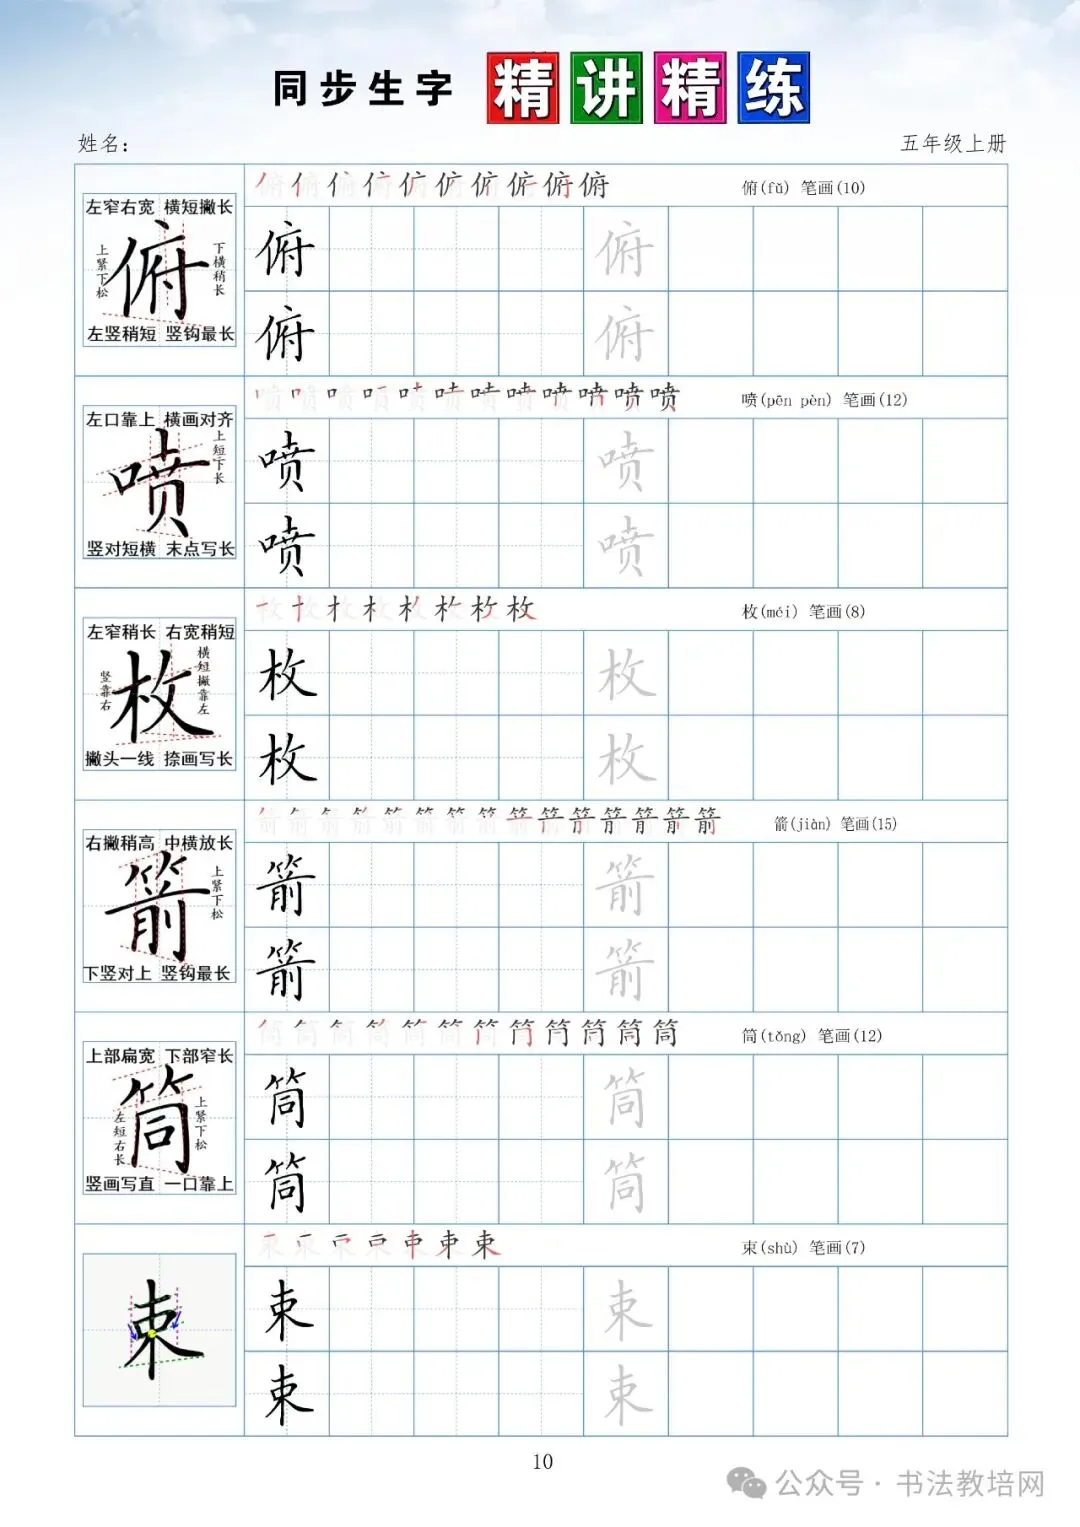 同步生字 精讲精练
姓名：
五年级上册
俯俯俯俯俯俯俯俯俯俯
俯(fǔ) 笔画(10)
左窄右宽 横短撇长
上紧下松
俯
下横稍长
左竖稍短 竖钩最长
俯 俯
俯 俯
喷喷喷喷喷喷喷喷喷喷喷喷
喷(pēn pèn) 笔画(12)
左口靠上 横画对齐
喷
上短下长
竖对短横 末点写长
喷 喷
喷 喷
枚枚枚枚枚枚枚枚
枚(méi) 笔画(8)
左窄稍长 右宽稍短
竖靠右
枚
横短撇靠左
撇头一线 捺画写长
枚 枚
枚 枚
箭箭箭箭箭箭箭箭箭箭箭箭箭箭箭
箭(jiàn) 笔画(15)
右撇稍高 中横放长
箭
上紧下松
下竖对上 竖钩最长
箭 箭
箭 箭
筒筒筒筒筒筒筒筒筒筒筒筒
筒(tǒng) 笔画(12)
上部扁宽 下部窄长
左短右长
筒
上紧下松
竖画写直 一口靠上
筒 筒
筒 筒
束束束束束束束
束(shù) 笔画(7)
束
束 束
束 束
10
公众号·书法教培网